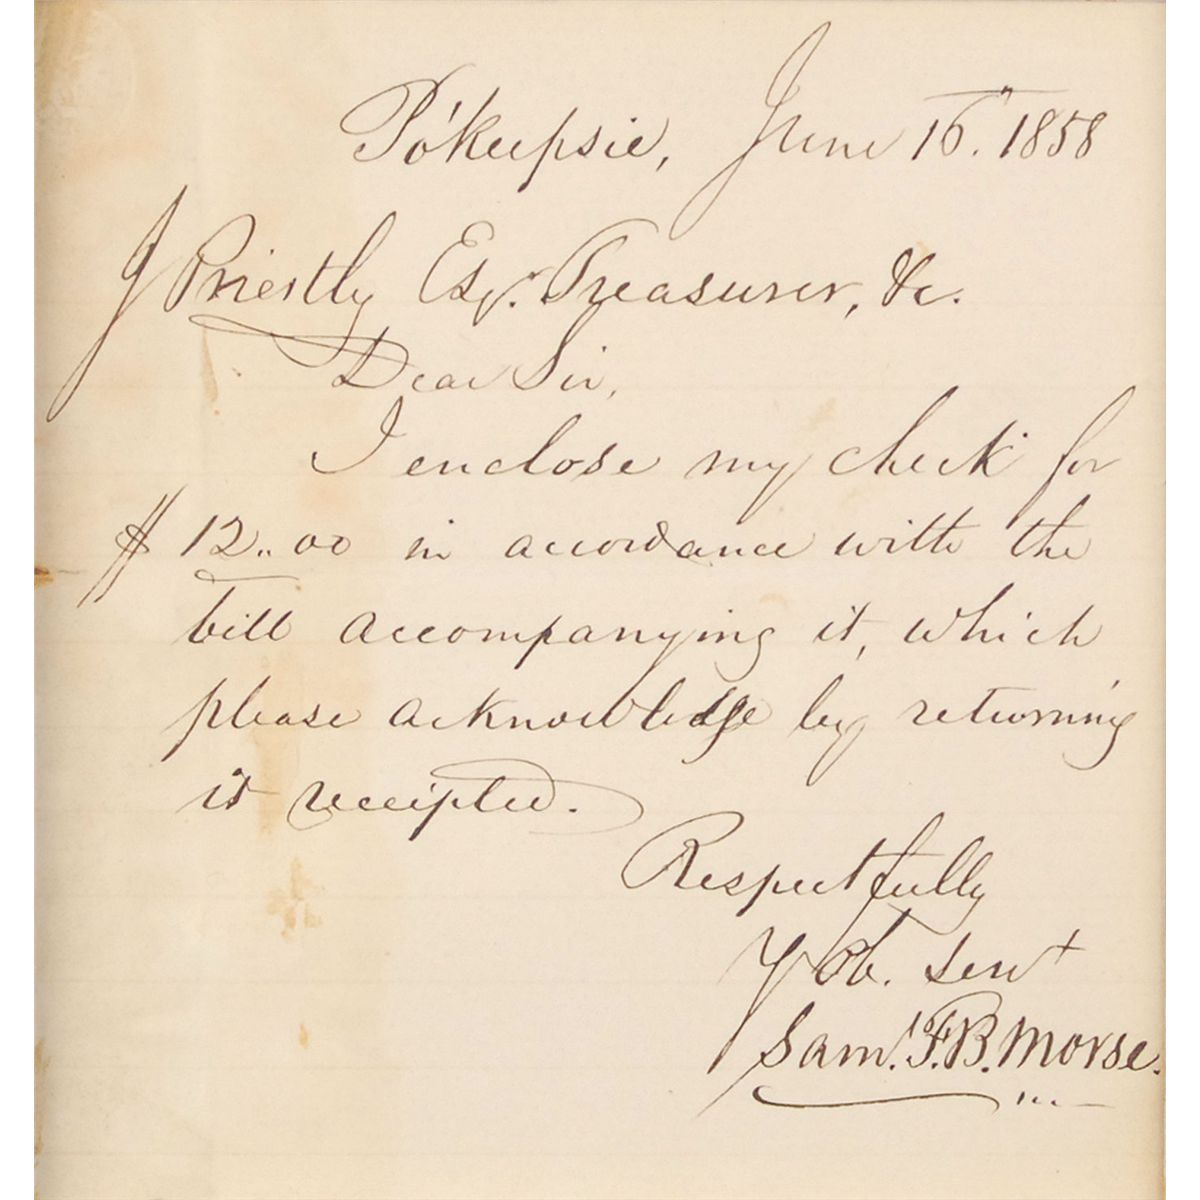 Po'keepsie, June 16. 1858
J Priestly Esqr. Treasurer, &c.
Dear Sir,
I enclose my check for
$12..00 in accordance with the
bill accompanying it, which
please acknowledge by returning
it receipted.
Respectfully
Yr Ob. Servt
Saml. F. B. Morse.